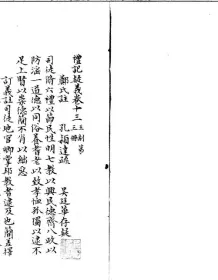 禮記疑義卷十三 王制第
三冊
鄭氏註 孔穎達疏 吳廷華存疑
司徒脩六禮以節民性明七教以興民德齊八政以
防淫一道德以同俗養耆老以致孝恤孤獨以逮不
足上賢以崇德簡不肖以絀惡
訂義註司徒地官卿掌邦教者逮及也簡差擇